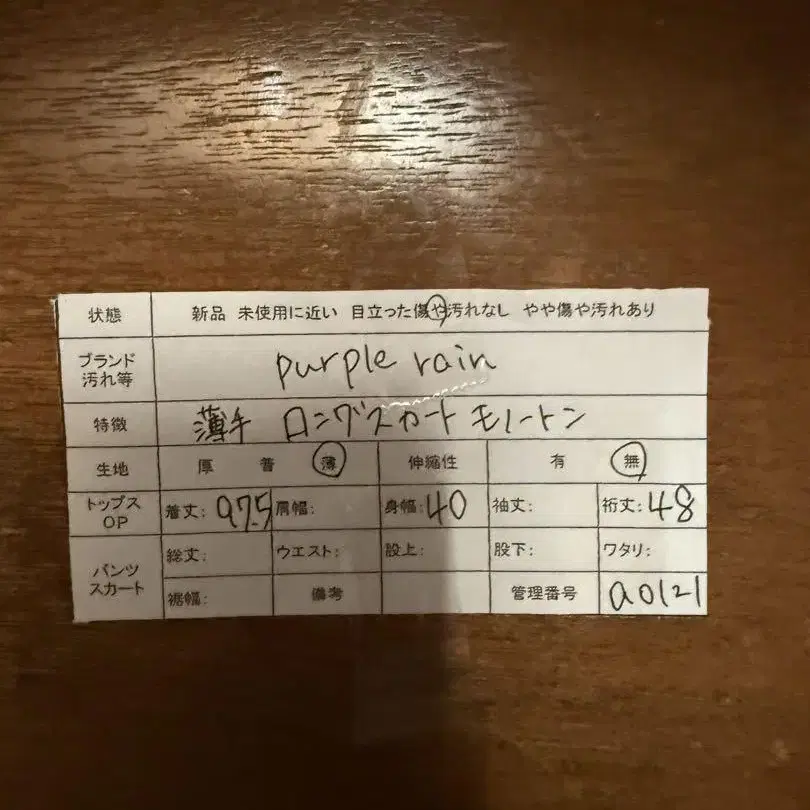 状態 新品 未使用に近い 目立った傷や汚れなし やや傷や汚れあり
ブランド
汚れ等
purple rain
特徴 薄手 ロングスカート モノトーン
生地 厚 普 薄 伸縮性 有 無
トップス
OP
着丈: 97.5 肩幅: 身幅: 40 袖丈: 裄丈: 48
パンツ
スカート
総丈: ウエスト: 股上: 股下: ワタリ:
裾幅: 備考 管理番号 a0121